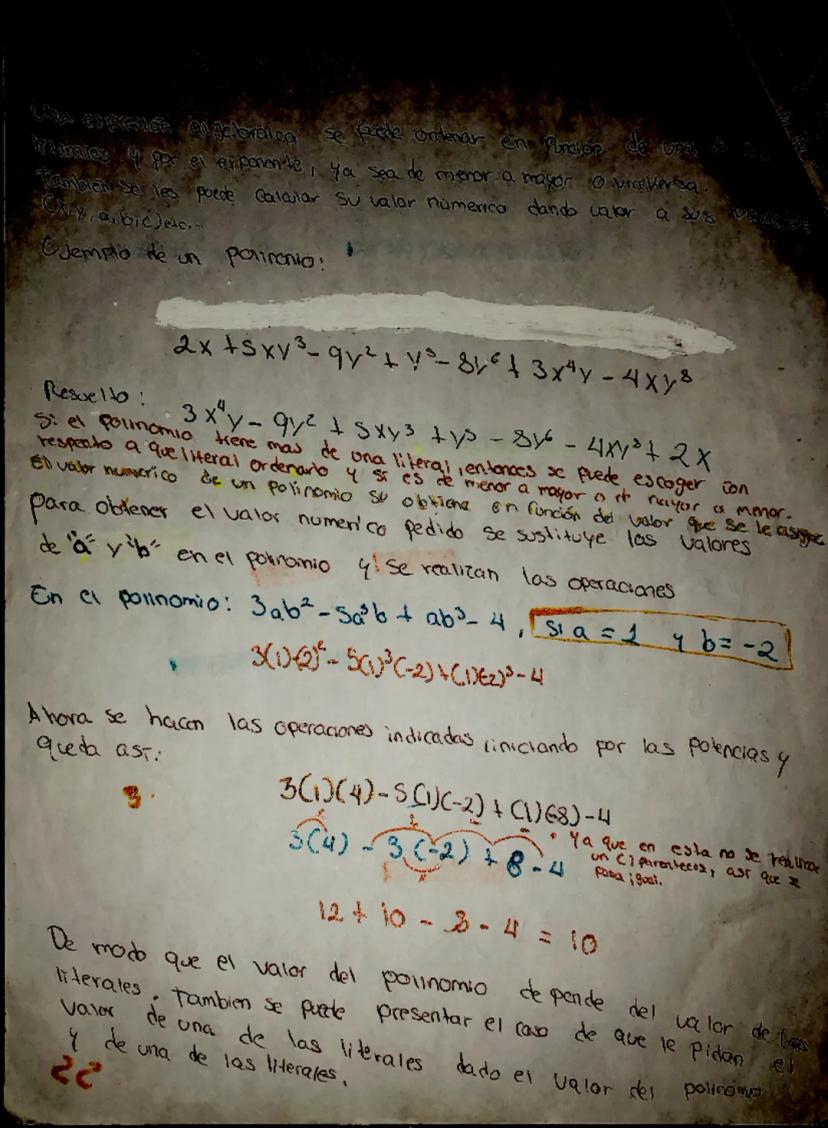 Una expresión algebraica se puede ordenar en función de una
literales y por el exponente, ya sea de menor a mayor o viceversa.
También se les puede calcular su valor númerico dando valor a sus
(x, y, a, b, c) etc...
Ejemplo de un polinomio:
2x + 5xy³ - 9y² + y⁵ - 8y⁶ + 3x⁴y - 4xy⁸
Resuelto:
3x⁴y - 9y² + 5xy³ + y⁵ - 8y⁶ - 4xy⁸ + 2x
Si el polinomio tiene mas de una literal, entonces se puede escoger con
respecto a que literal ordenarlo y si es de menor a mayor o de mayor a menor.
El valor numerico de un polinomio se obtiene en función del valor que se le asigne
Para obtener el valor numerico pedido se sustituye los valores
de "a" y "b" en el polinomio y se realizan las operaciones
En el polinomio: 3ab² - 5a³b + ab³ - 4, si a = 1 y b = -2
3(1)(-2)² - 5(1)³(-2) + (1)(-2)³ - 4
Ahora se hacen las operaciones indicadas iniciando por las potencias y
queda así:
3(1)(4) - 5(1)(-2) + (1)(-8) - 4
3(4) - 3(-2) + 8 - 4
* Ya que en esta no se
un ( ) parentecis, así que se
pasa igual.
12 + 10 - 8 - 4 = 10
De modo que el valor del polinomio depende del valor de las
literales. Tambien se puede presentar el caso de que le pidan el
valor de una de las literales dado el valor del polinomio
y de una de las literales.